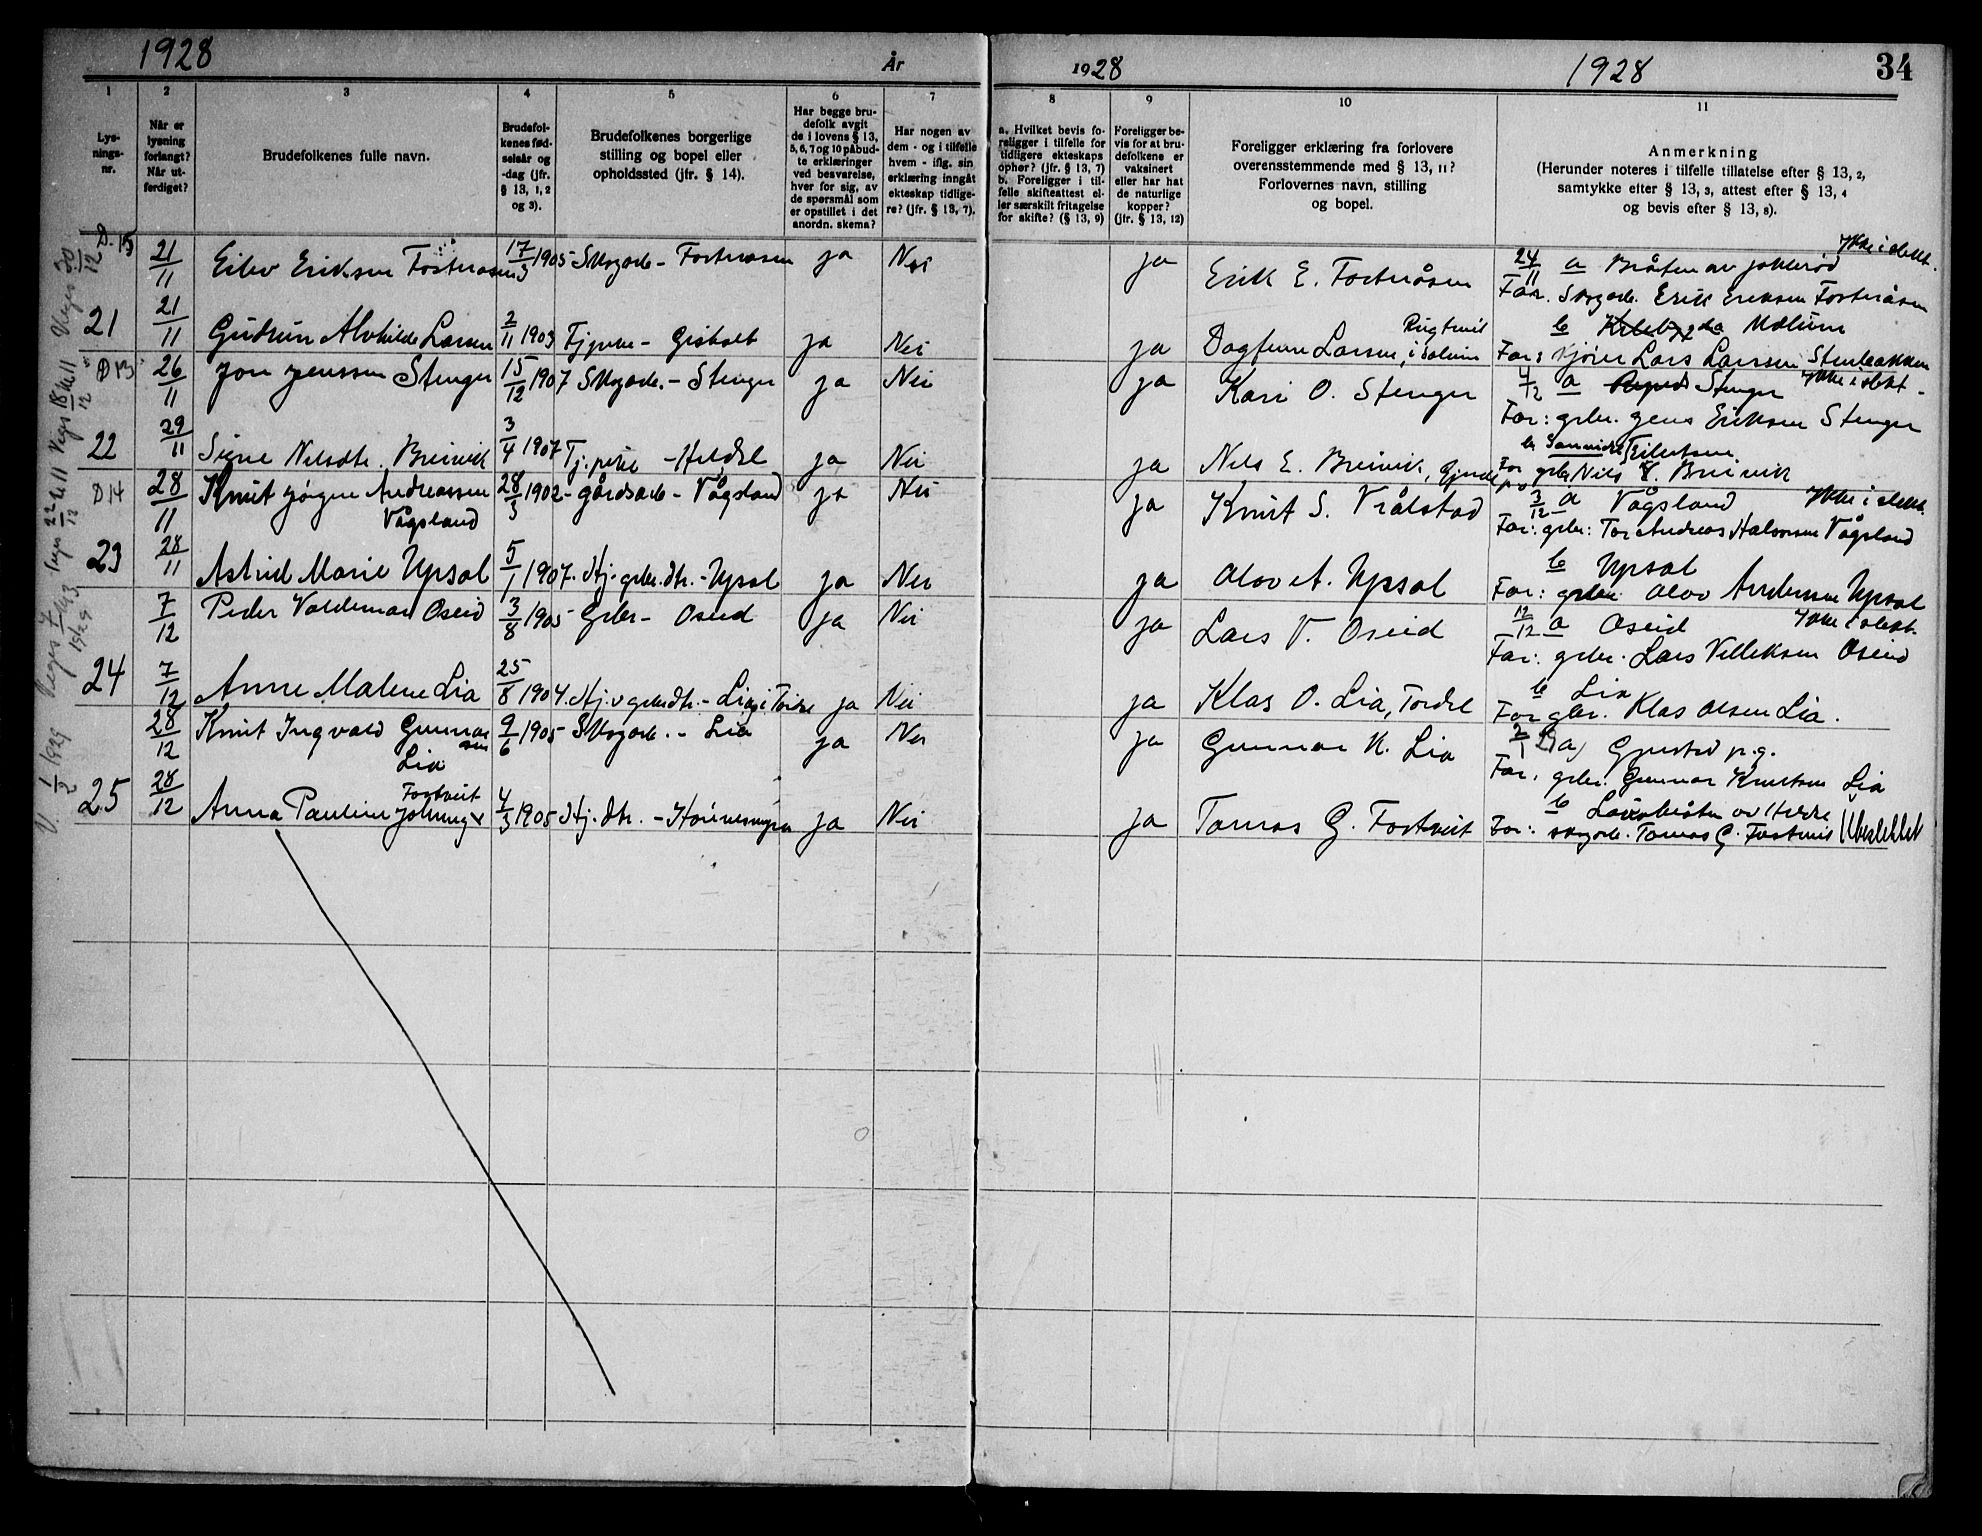 1928 År 1928 1928 34
1 2 3 4 5 6 7 8 9 10 11
Lysningsnr.
Når er lysning forlangt? Når utferdiget?
Brudefolkenes fulle navn.
Brudefolkenes fødselsår og -dag (jfr. § 13, 1, 2 og 3).
Brudefolkenes borgerlige stilling og bopel eller opholdssted (jfr. § 14).
Har begge brudefolk avgit de i lovens § 13, 5, 6, 7 og 10 påbudte erklæringer ved besvarelse, hver for sig, av de spørsmål som er opstillet i det anordn. skema?
Har nogen av dem - og i tilfelle hvem - iflg. sin erklæring inngått ekteskap tidligere? (jfr. § 13, 7).
a. Hvilket bevis foreligger i tilfelle for tidligere ekteskaps ophør? (jfr. § 13, 7) b. Foreligger i tilfelle skifteattest eller særskilt fritagelse for skifte? (§ 13, 9)
Foreligger bevis for at brudefolkene er vaksinert eller har hat de naturlige kopper? (jfr. § 13, 12)
Foreligger erklæring fra forlovere overensstemmende med § 13, 11? Forlovernes navn, stilling og bopel.
Anmerkning (Herunder noteres i tilfelle tillatelse efter § 13, 2, samtykke efter § 13, 3, attest efter § 13, 4 og bevis efter § 13, 8).
21/11 Eilev Eriksen Fosteråsen 17/3 1905 Skogarb. - Fosteråsen ja Nei ja Erik E. Fosteråsen 24/11 a Bråten av Jokkerød Ikke i slekt.
Far. Skogarb. Erik Eriksen Fosteråsen
21 21/11 Gudrun Alvhilde Larsen 2/11 1903 Tj.pike - Gisholt ja Nei ja Dagfinn Larsen, i Solum b Melum
Far: Kjører Lars Larssen Stenbakken
26/11 Jon Jenssen Stenger 15/12 1907 Skogarb. - Stenger ja Nei ja Kari O. Stenger 4/12 a Stenger Ikke i slekt -
Far: grbr. Jens Eriksen Stenger
22 29/11 Signe Nilsdtr. Breivik 3/4 1907 Tj.pike ja Nei ja Nils E. Breivik, b Sannidal
Far grbr. Nils Eilertsen Breivik
D 14 28/11 Knut Jørgen Andreassen Vågsland 28/3 1902 - gårdsarb - Vågsland ja Nei ja Knut S. Vrålstad 3/12 a Vågsland Ikke i slekt.
Far: grbr: Tor Andreas Halvorsen Vågsland
23 28/11 Astrid Marie Upsal 5/1 1907. Hj. grbr.dtr. - Upsal ja Nei ja Olav A. Upsal b Upsal
Far: grbr. Olav Andersen Upsal
7/12 Peder Valdemar Oseid 3/8 1905 Grbr - Oseid ja Nei ja Lars V. Oseid 12/12 a Oseid Ikke i slekt.
Far: grbr. Lars Villeksen Oseid
24 7/12 Anne Malene Lia 25/8 1904. Hj.v. grbrdtr. - Lia i Tørdal ja Nei ja Klas O. Lia, Tordal b Lia
Far grbr. Klas Olsen Lia.
28/12 Knut Ingvald Gunnarsen Lia 9/6 1905 Skogarb. - Lia ja Nei ja Gunnar K. Lia a) Gjerstad p.g.
Far. grbr. Gunnar Knutsen Lia
25 28/12 Anna Pauline Johnny Fostveit 4/3 1905 Hj. dtr. ja Nei ja Tomas G. Fostveit
Far: skogarb. Tomas G. Fostveit Ubeslektet